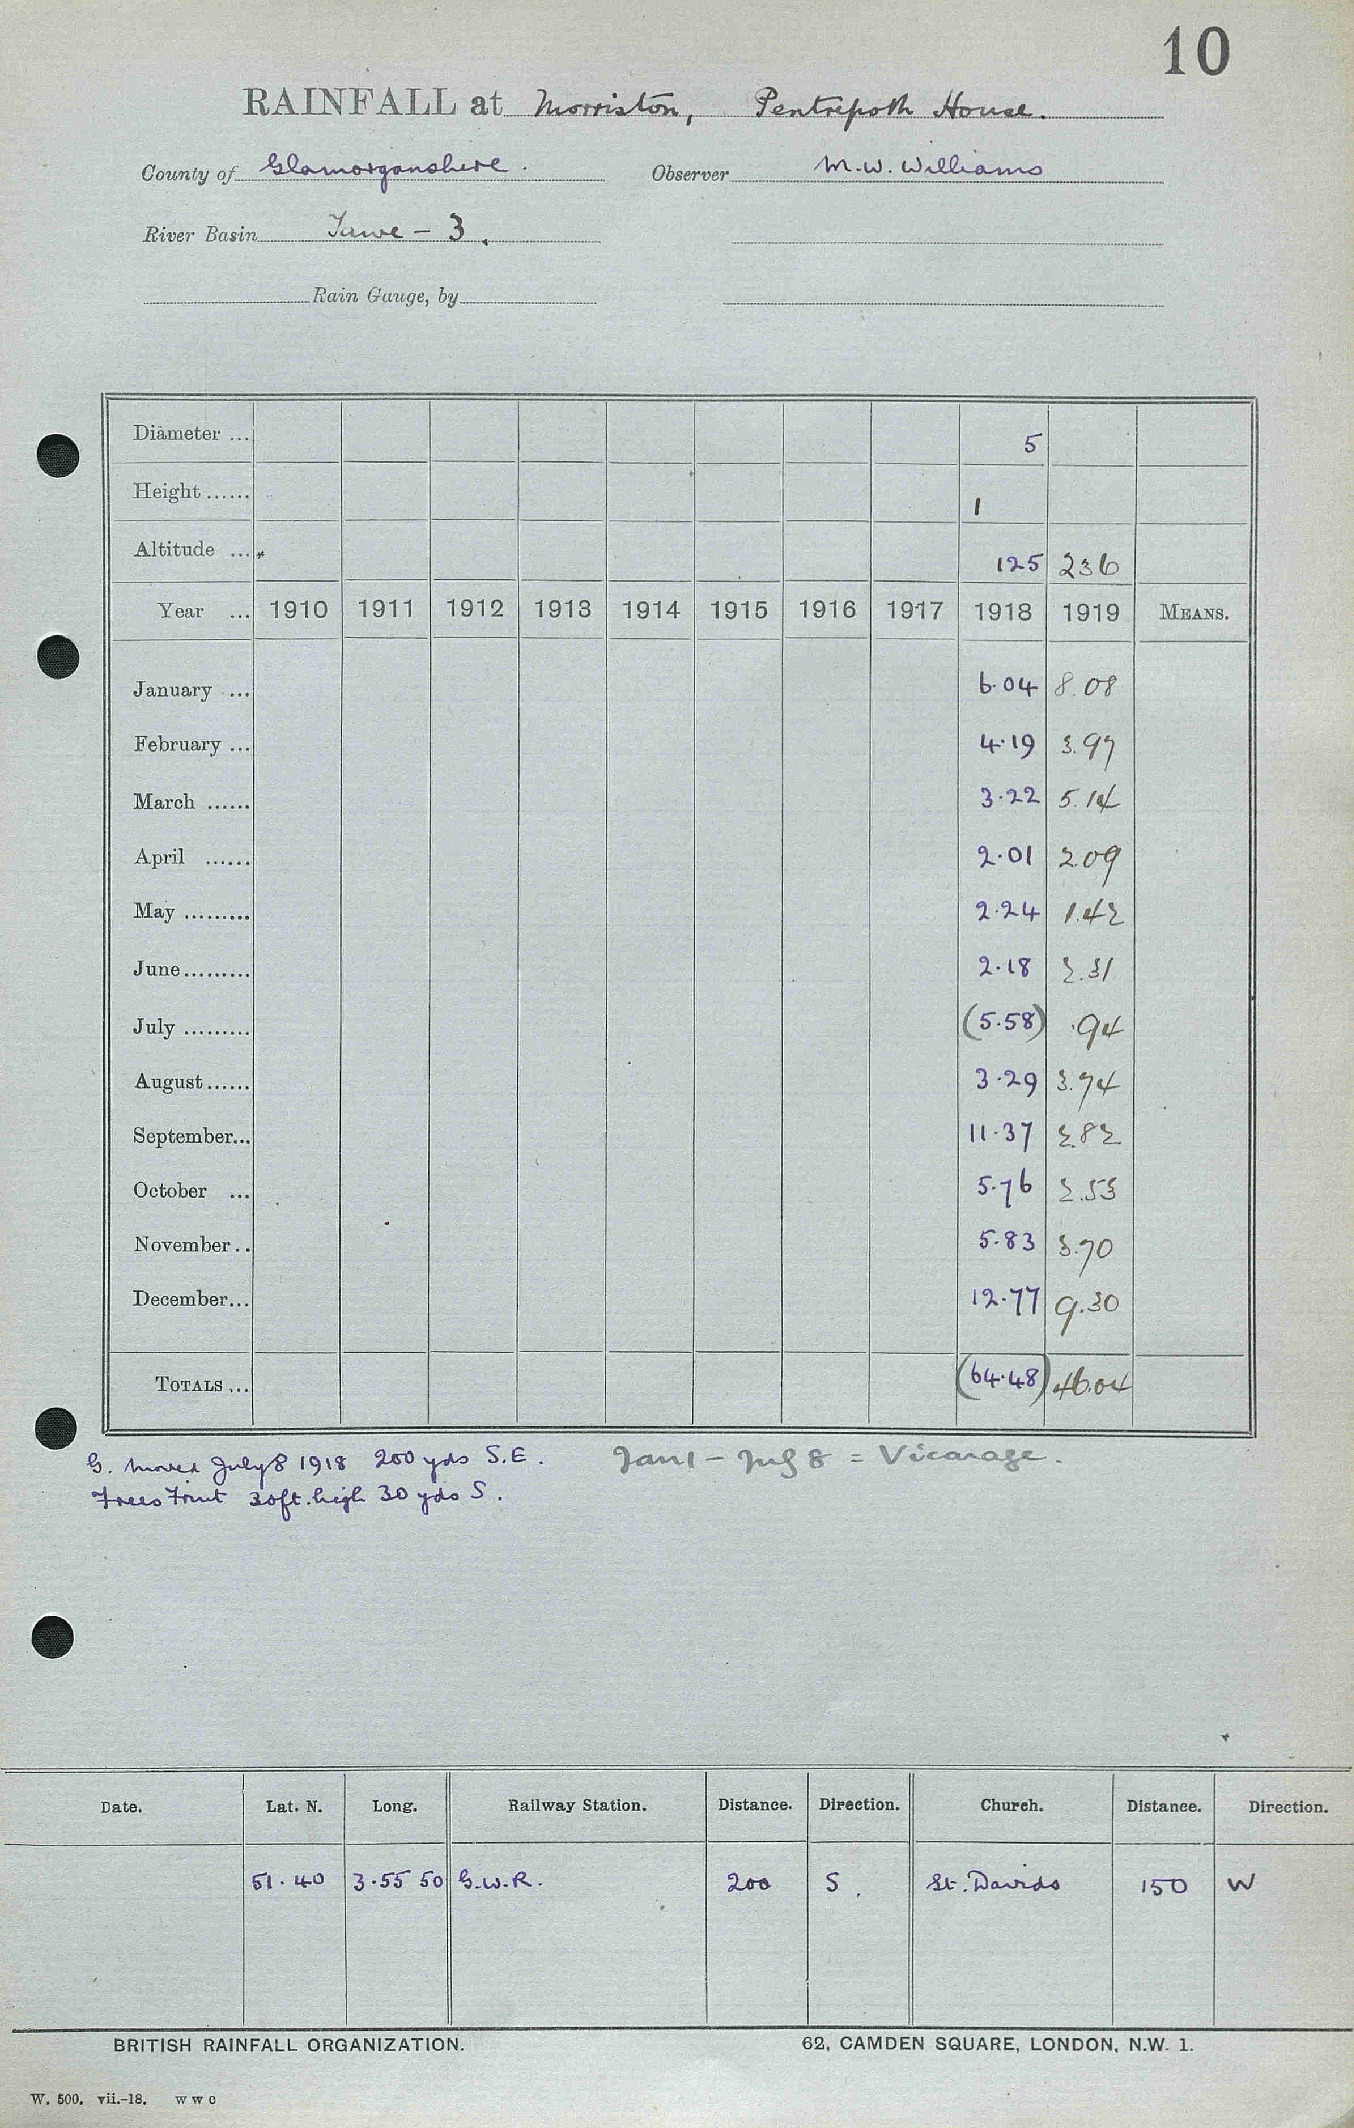 10
RAINFALL at Morriston, Pentrepoth House.
County of Glamorganshire. Observer M.W. Williams
River Basin Tawe - 3.
Rain Gauge, by
Diameter ... 5
Height ...... 1
Altitude ... 125 236
Year ... 1910 1911 1912 1913 1914 1915 1916 1917 1918 1919 MEANS.
January ... 6.04 8.08
February ... 4.19 3.97
March ...... 3.22 5.14
April ...... 2.01 2.09
May ......... 2.24 1.42
June ......... 2.18 2.31
July ......... (5.58) .94
August ...... 3.29 3.74
September... 11.37 2.82
October ... 5.76 2.53
November .. 5.83 3.70
December... 12.77 9.30
TOTALS ... (64.48) 46.04
G. moved July 8 1918 200 yds S.E. Jan 1 - July 8 = Vicarage.
Trees Fruit 30ft. high 30 yds S.
Date. Lat. N. Long. Railway Station. Distance. Direction. Church. Distance. Direction.
51.40 3.55 50 G.W.R. 200 S. St. Davids 150 W
BRITISH RAINFALL ORGANIZATION. 62, CAMDEN SQUARE, LONDON, N.W. 1.
W. 500. vii.-18. W W C